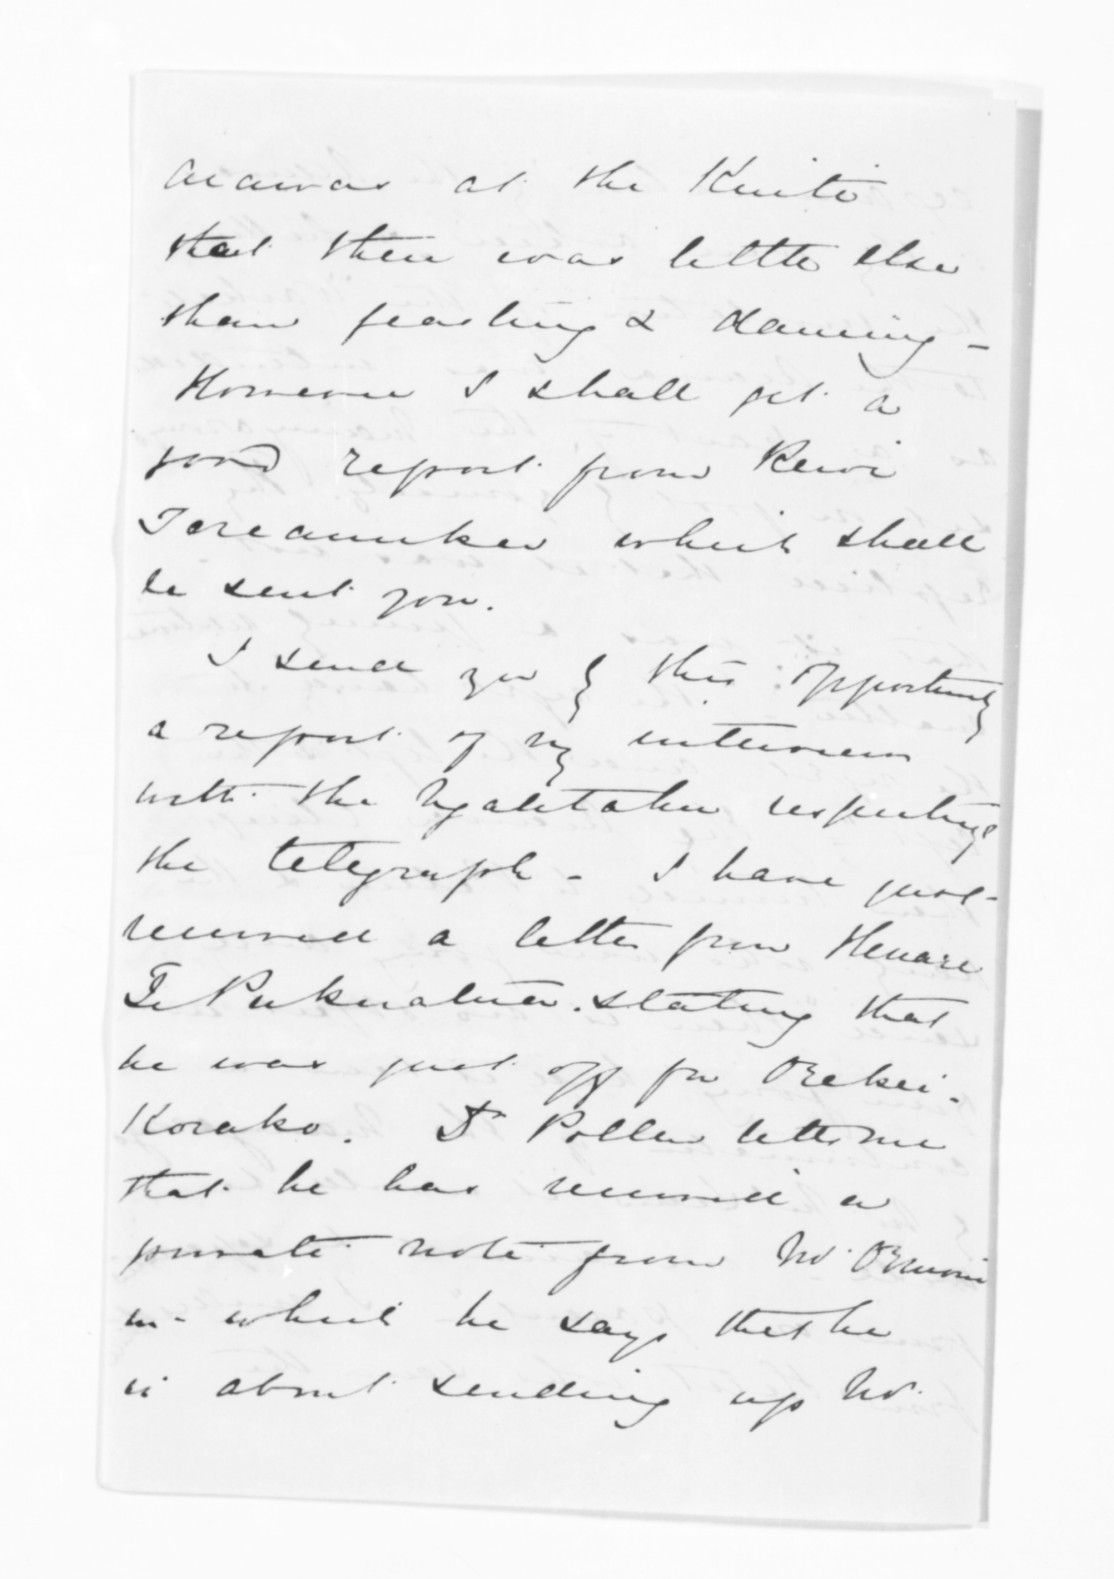 Arawas at the Kuiti
that there was little else
than feasting & dancing -
However I shall get a
good report from Rewi
Tereanuku which shall
be sent you.
I send you by this opportunity
a report of my interview
with the Ngatitahu respecting
the telegraph - I have just
received a letter from Henare
Te Pukuatua. stating that
he was just off for Orakei-
Korako. Dr Pollen tells me
that he has received a
private note from Mr Ormond
in which he says that he
is about sending up Mr